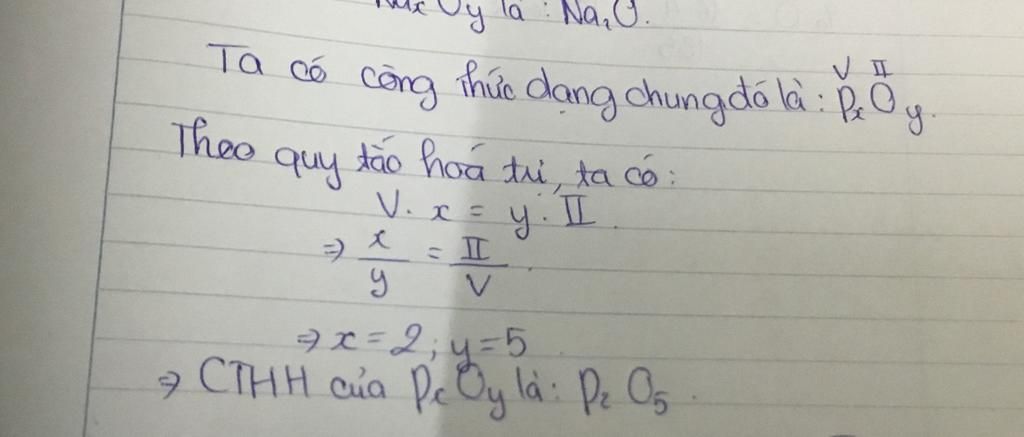 NaxOy là : Na2O.
V II
Ta có công thức dạng chung đó là : PxOy.
Theo quy tắc hoá trị, ta có :
V. x = y. II
⇒ x/y = II/V.
⇒ x = 2 ; y = 5
⇒ CTHH của PxOy là : P2O5.